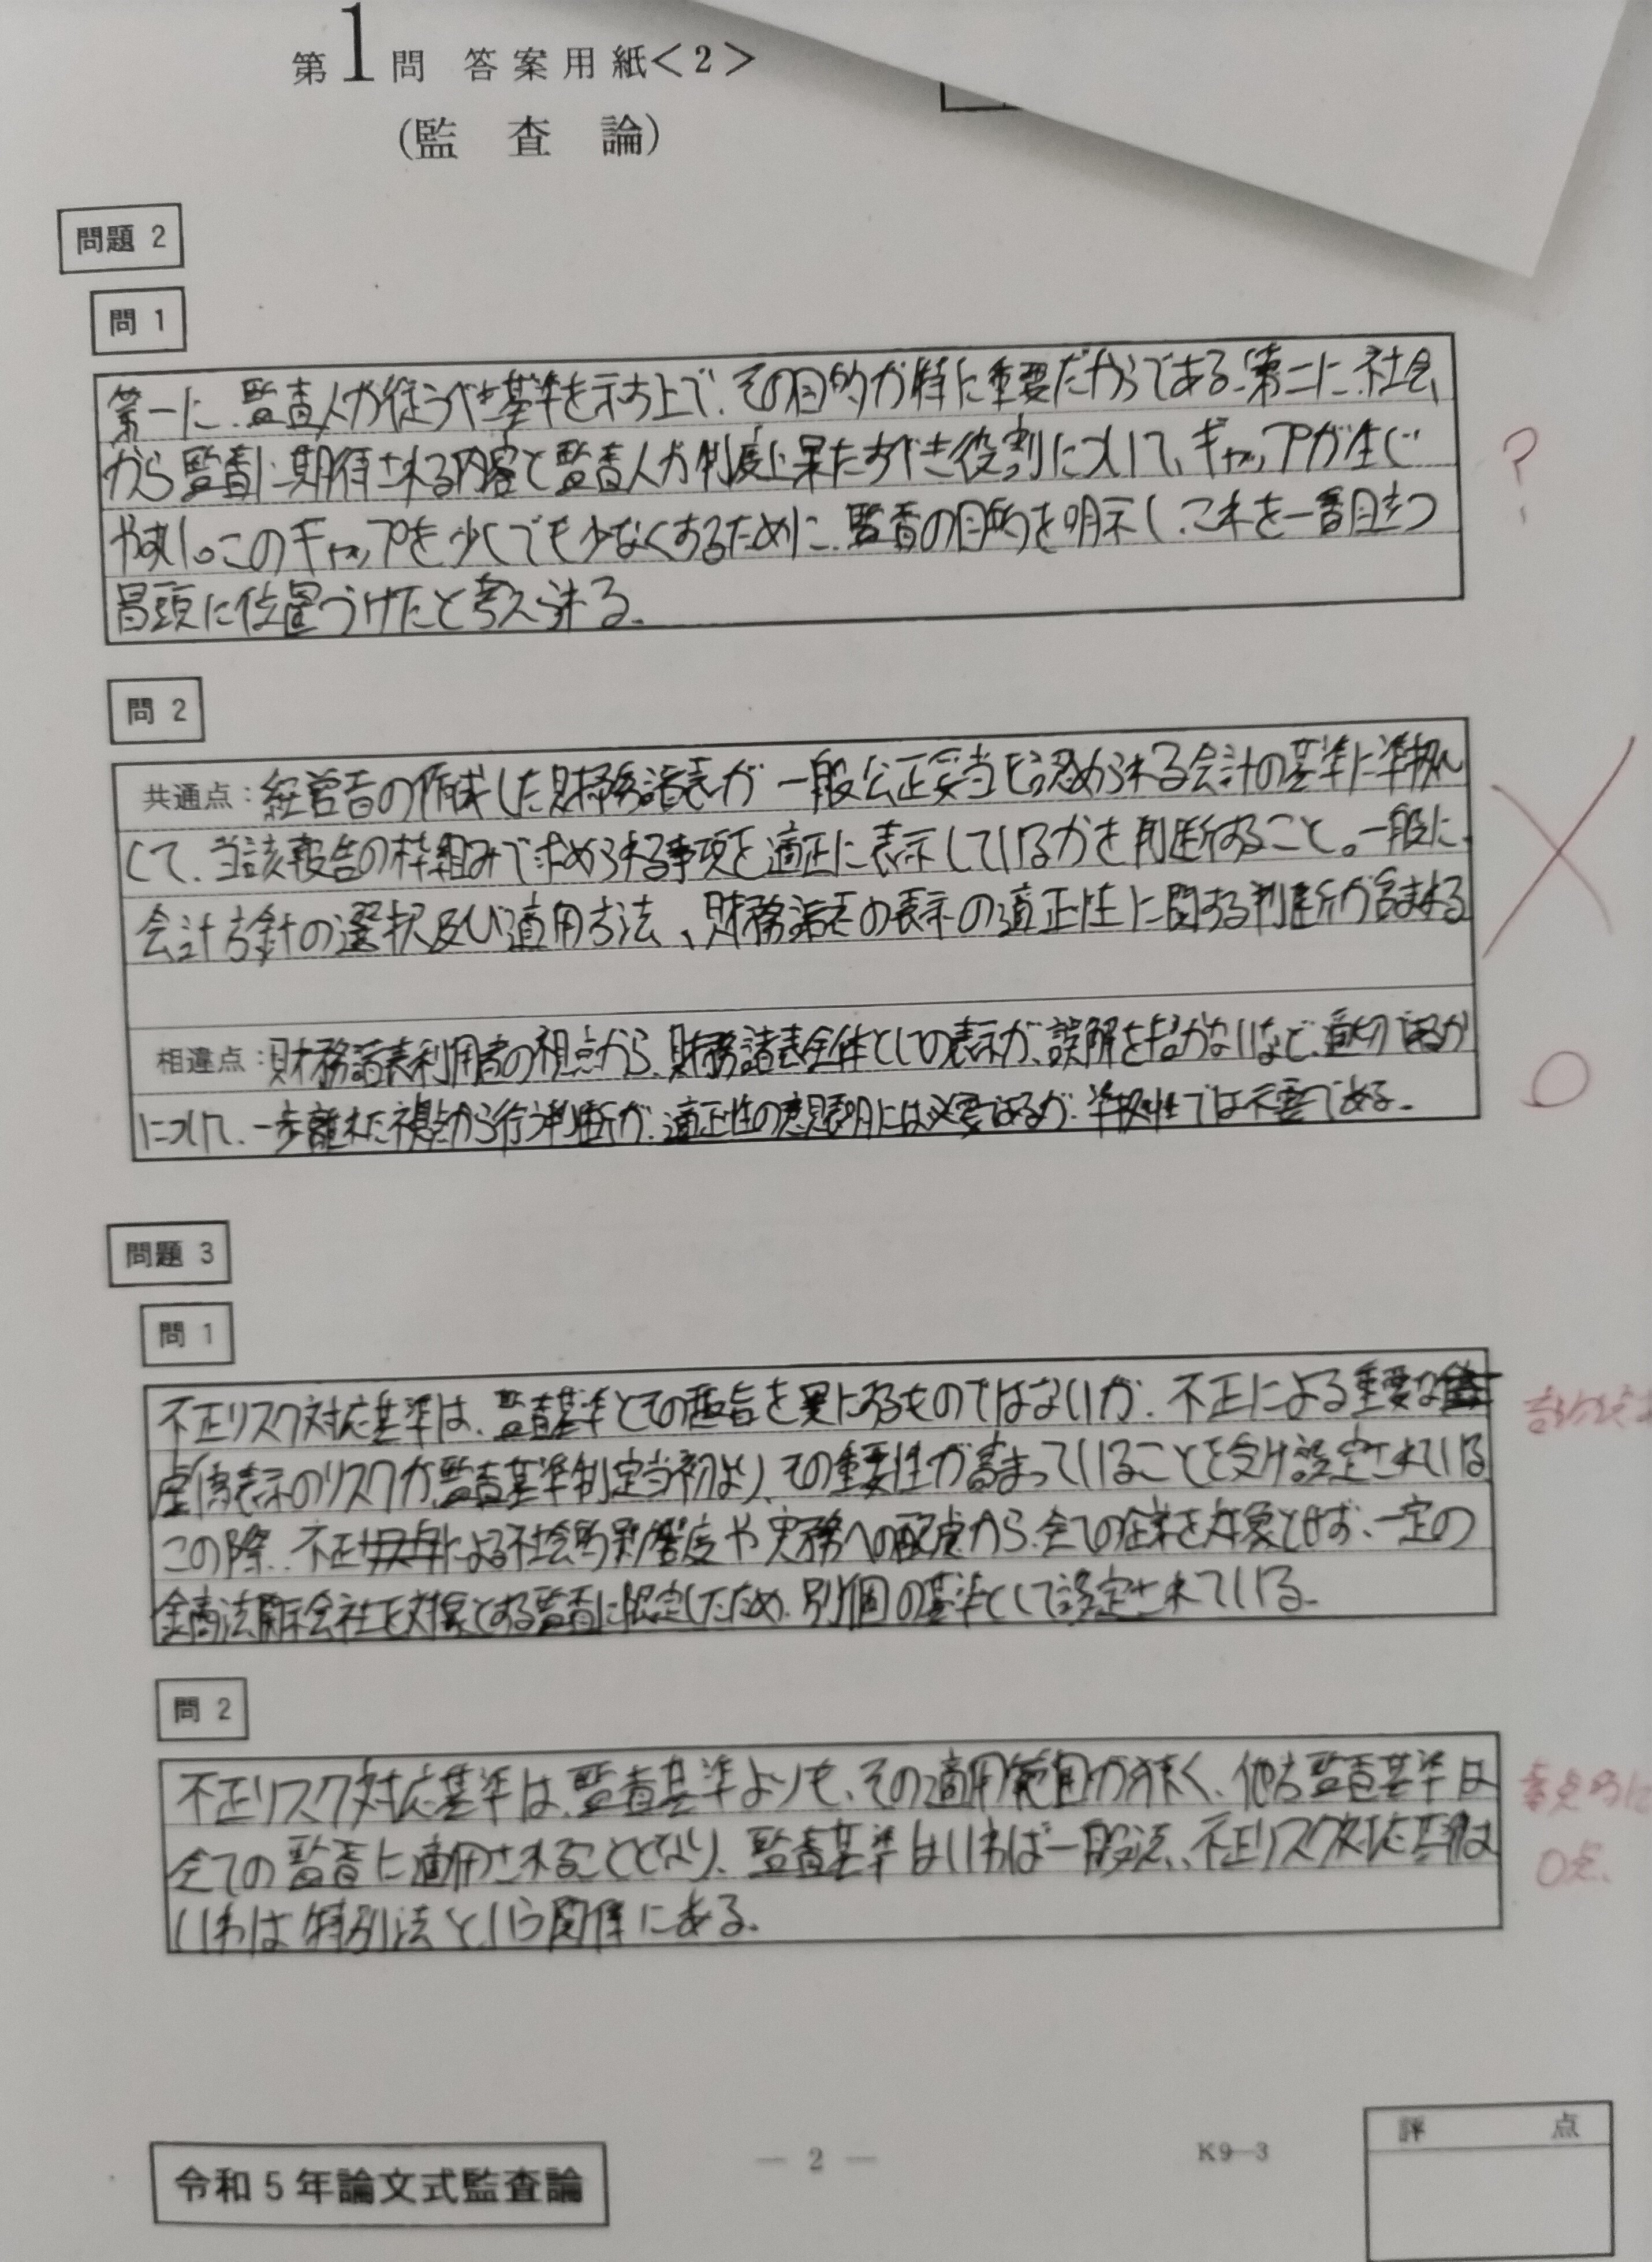 第1問 答案用紙<2>
(監査論)
問題 2
問 1
第一に、監査人が従うべき基準を示す上で、その目的が特に重要だからである。第二に、社会
から監査に期待される内容と監査人が制度上果たすべき役割について、ギャップが生じ
やすい。このギャップを少しでも少なくするために、監査の目的を明示し、これを一番目立つ
冒頭に位置づけたと考えられる。
?
問 2
共通点:経営者の作成した財務諸表が一般に公正妥当と認められる会計の基準に準拠
して、当該報告の枠組みで求められる事項を適正に表示しているかを判断すること。一般に、
会計方針の選択及び適用方法、財務諸表の表示の適正性に関する判断が含まれる
相違点:財務諸表利用者の視点から、財務諸表全体としての表示が、誤解を招かないなど、適切であるか
について、一歩離れた視点から行う判断が、適正性の意見表明には必要であるが、準拠性では不要である。
問題 3
問 1
不正リスク対応基準は、監査基準とその趣旨を異にするものではないが、不正による重要な
虚偽表示のリスクが、監査基準制定当初より、その重要性が高まっていることを受け設定されている
この際、不正による社会的影響度や実務への配慮から、全ての企業を対象とせず、一定の
金商法開示会社を対象とする監査に限定したため、別個の基準として設定されている。
問 2
不正リスク対応基準は、監査基準よりも、その適用範囲が狭く、他方監査基準は
全ての監査に適用されることとなり、監査基準はいわば一般法、不正リスク対応基準は
いわば特別法という関係にある。
0点.
令和5年論文式監査論
— 2 —
K9-3
評点